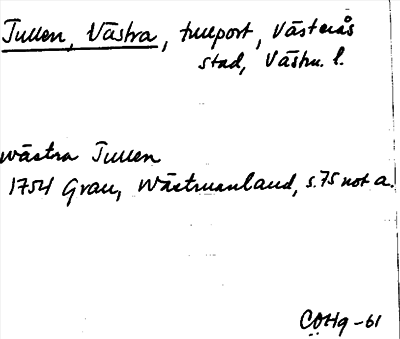 Tullen, Västra, tullport, Västerås
stad, Västm. l.
Wästra Tullen
1754 Grau, Wästmanland, s. 75 not a.
COHg -61